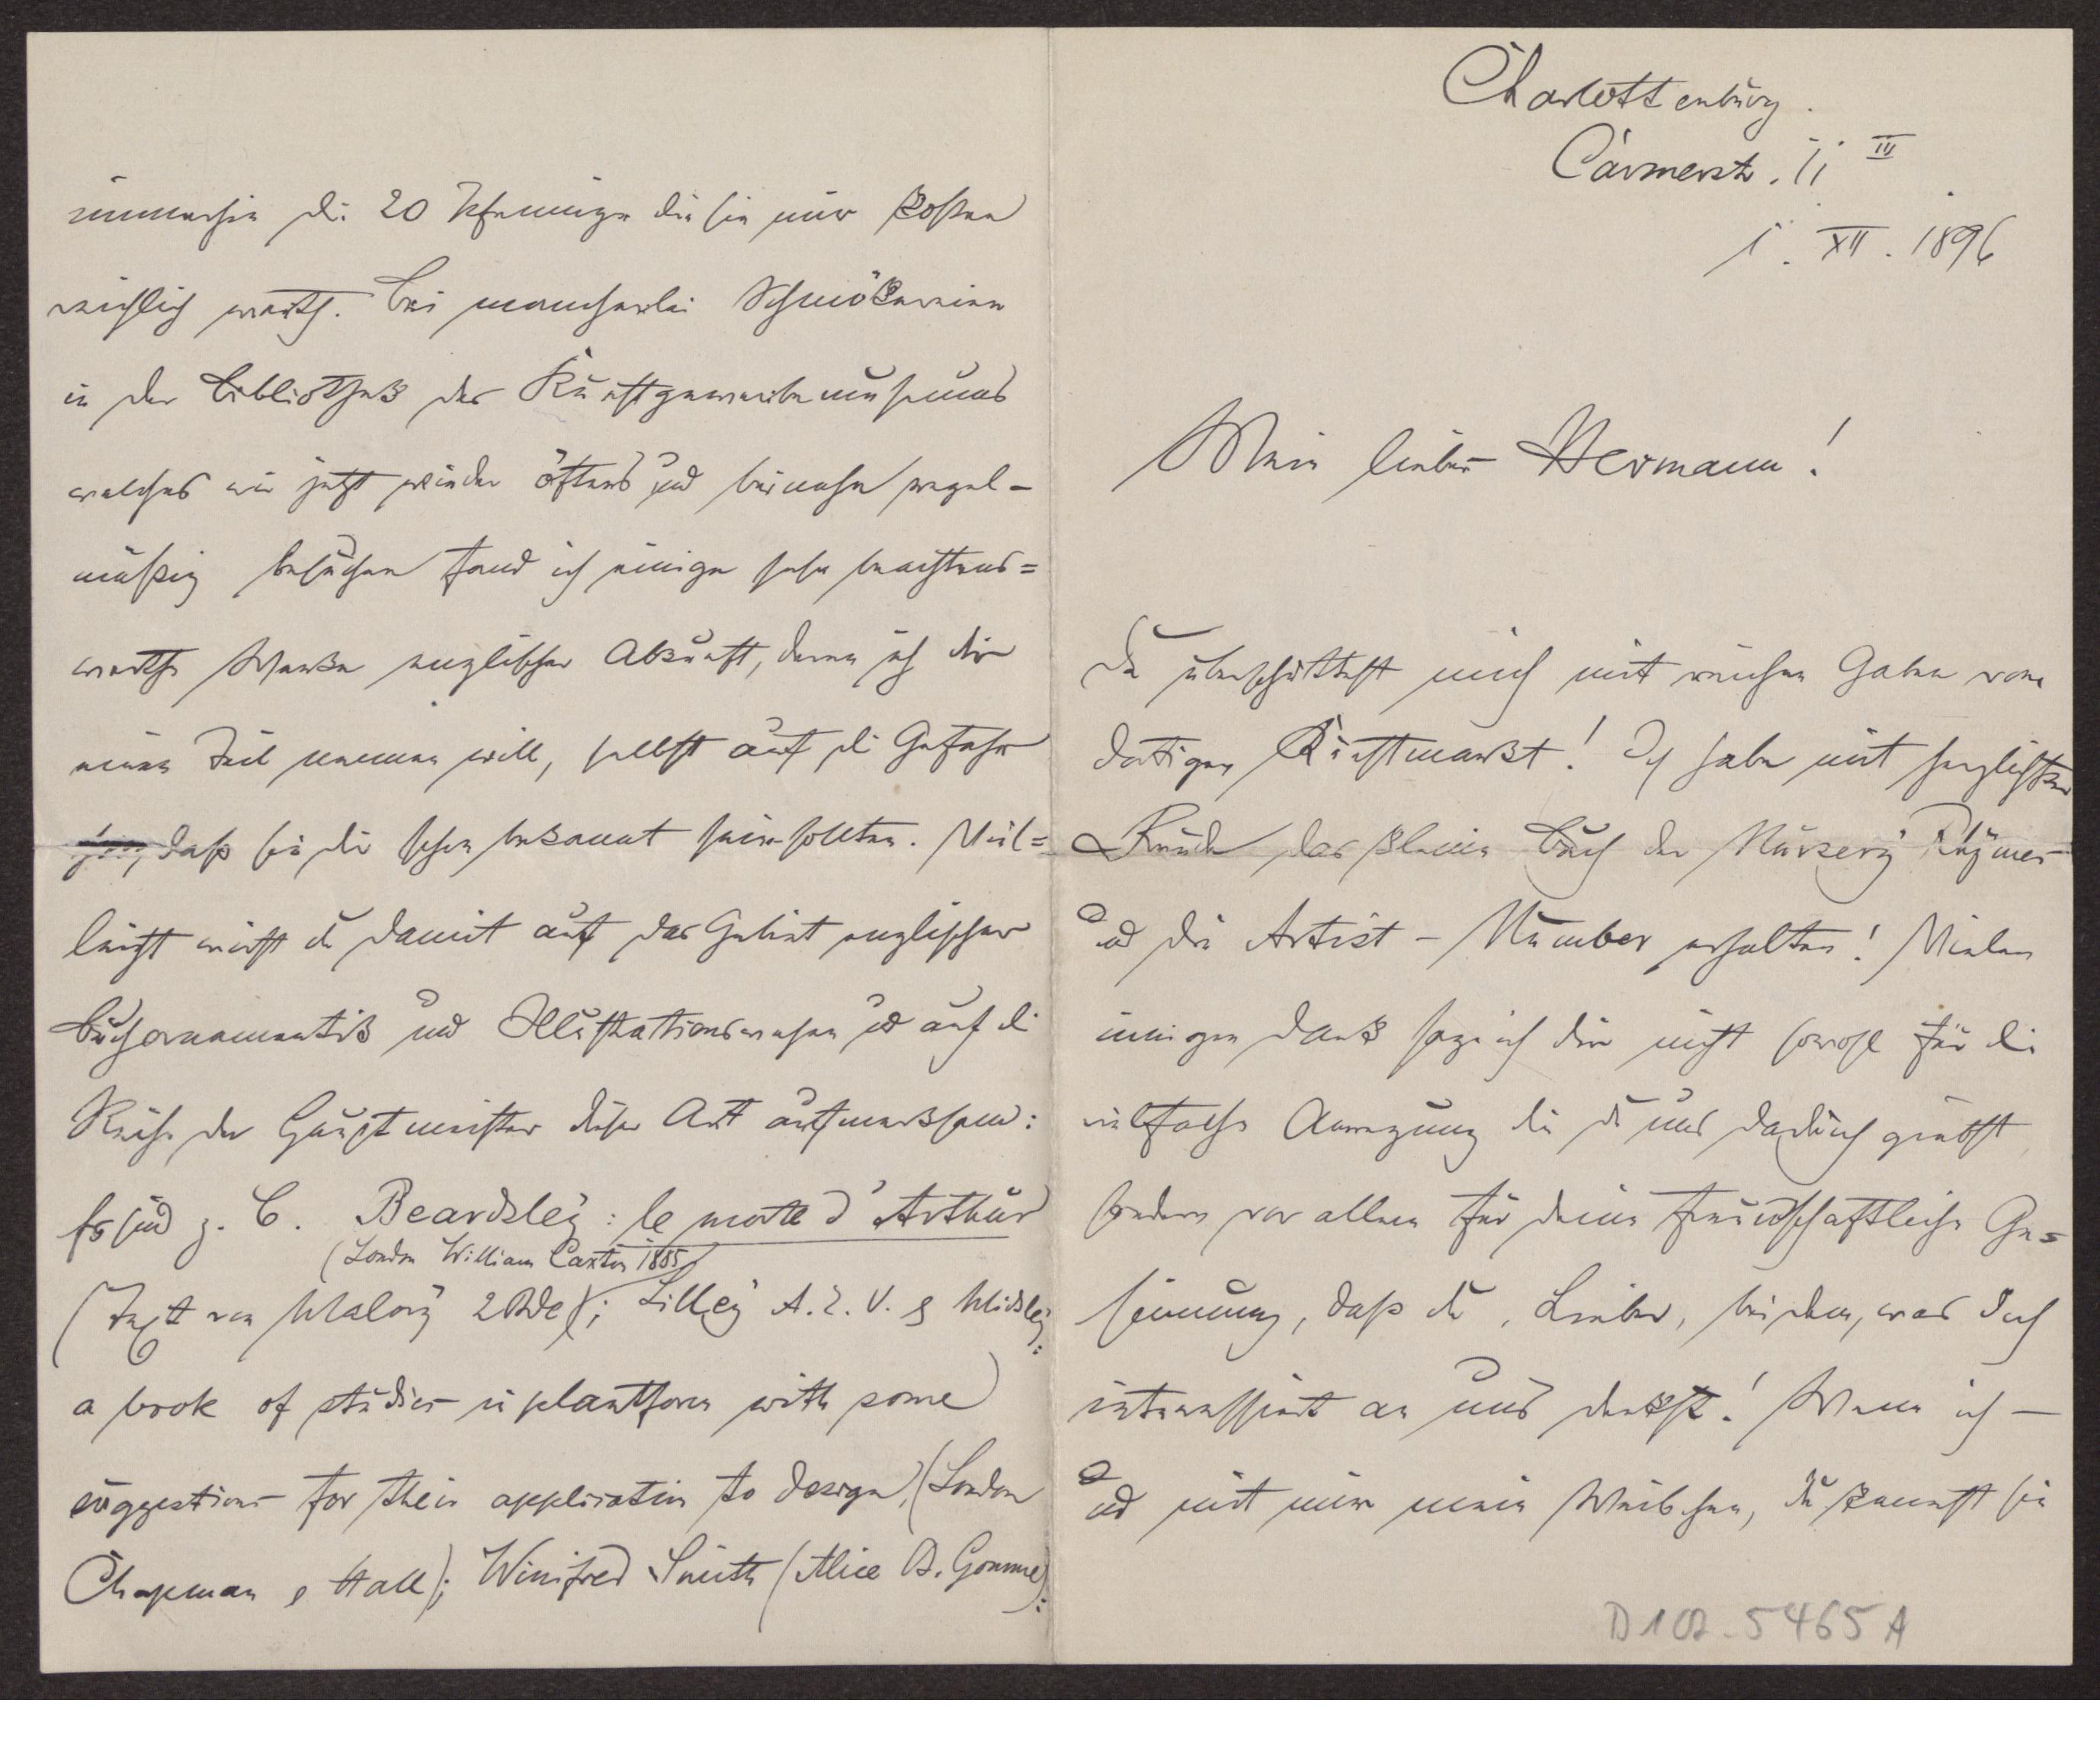 Charlottenburg.
Carmerstr. 11 III
1. XII. 1896
Mein lieber Hermann!
Du überschüttest mich mit reichen Gaben vom
dortigen Kunstmarkt! Ich habe mit herzlichster
Freude das kleine Buch der Nursery Rhymes
und die Artist-Number erhalten! Vielen
innigen Dank sage ich dir nicht sowohl für die
vielfache Anregung die du uns dadurch giebst
sondern vor allem für deine freundschaftliche Ge=
sinnung, daß du, Lieber, bei dem, was dich
interessirt an uns denkst! Wenn ich –
und mit mir mein Weibchen, du kennst sie
immerhin die 20 Pfennige die sie nur kosten
reichlich werth. Bei mancherlei Schmökereien
in der Bibliothek des Kunstgewerbemuseums
welches wir jetzt wieder öfters und beinahe regel-
mäßig besuchen fand ich einige sehr beachtens=
werthe Werke englischer Abkunft, deren ich dir
einen Teil nennen will, selbst auf die Gefahr
daß sie dir schon bekannt sein sollten. Viel=
leicht wirfst du damit auf das Gebiet englischer
Buchornamentik und Illustrationswesen und auf die
Reihe der Hauptmeister dieser Art aufmerksam:
Es sind z. B. Beardsley: le morte d'Arthur
(London William Caxton 1885)
(Text von Malory 2 Bde); Lilley A. E. V. & Midgley:
a book of studies in plantform with some
suggestions for their application to design, (London
Chapman & Hall); Winifred Smith (Alice B. Gomme):
D 102-5465 A